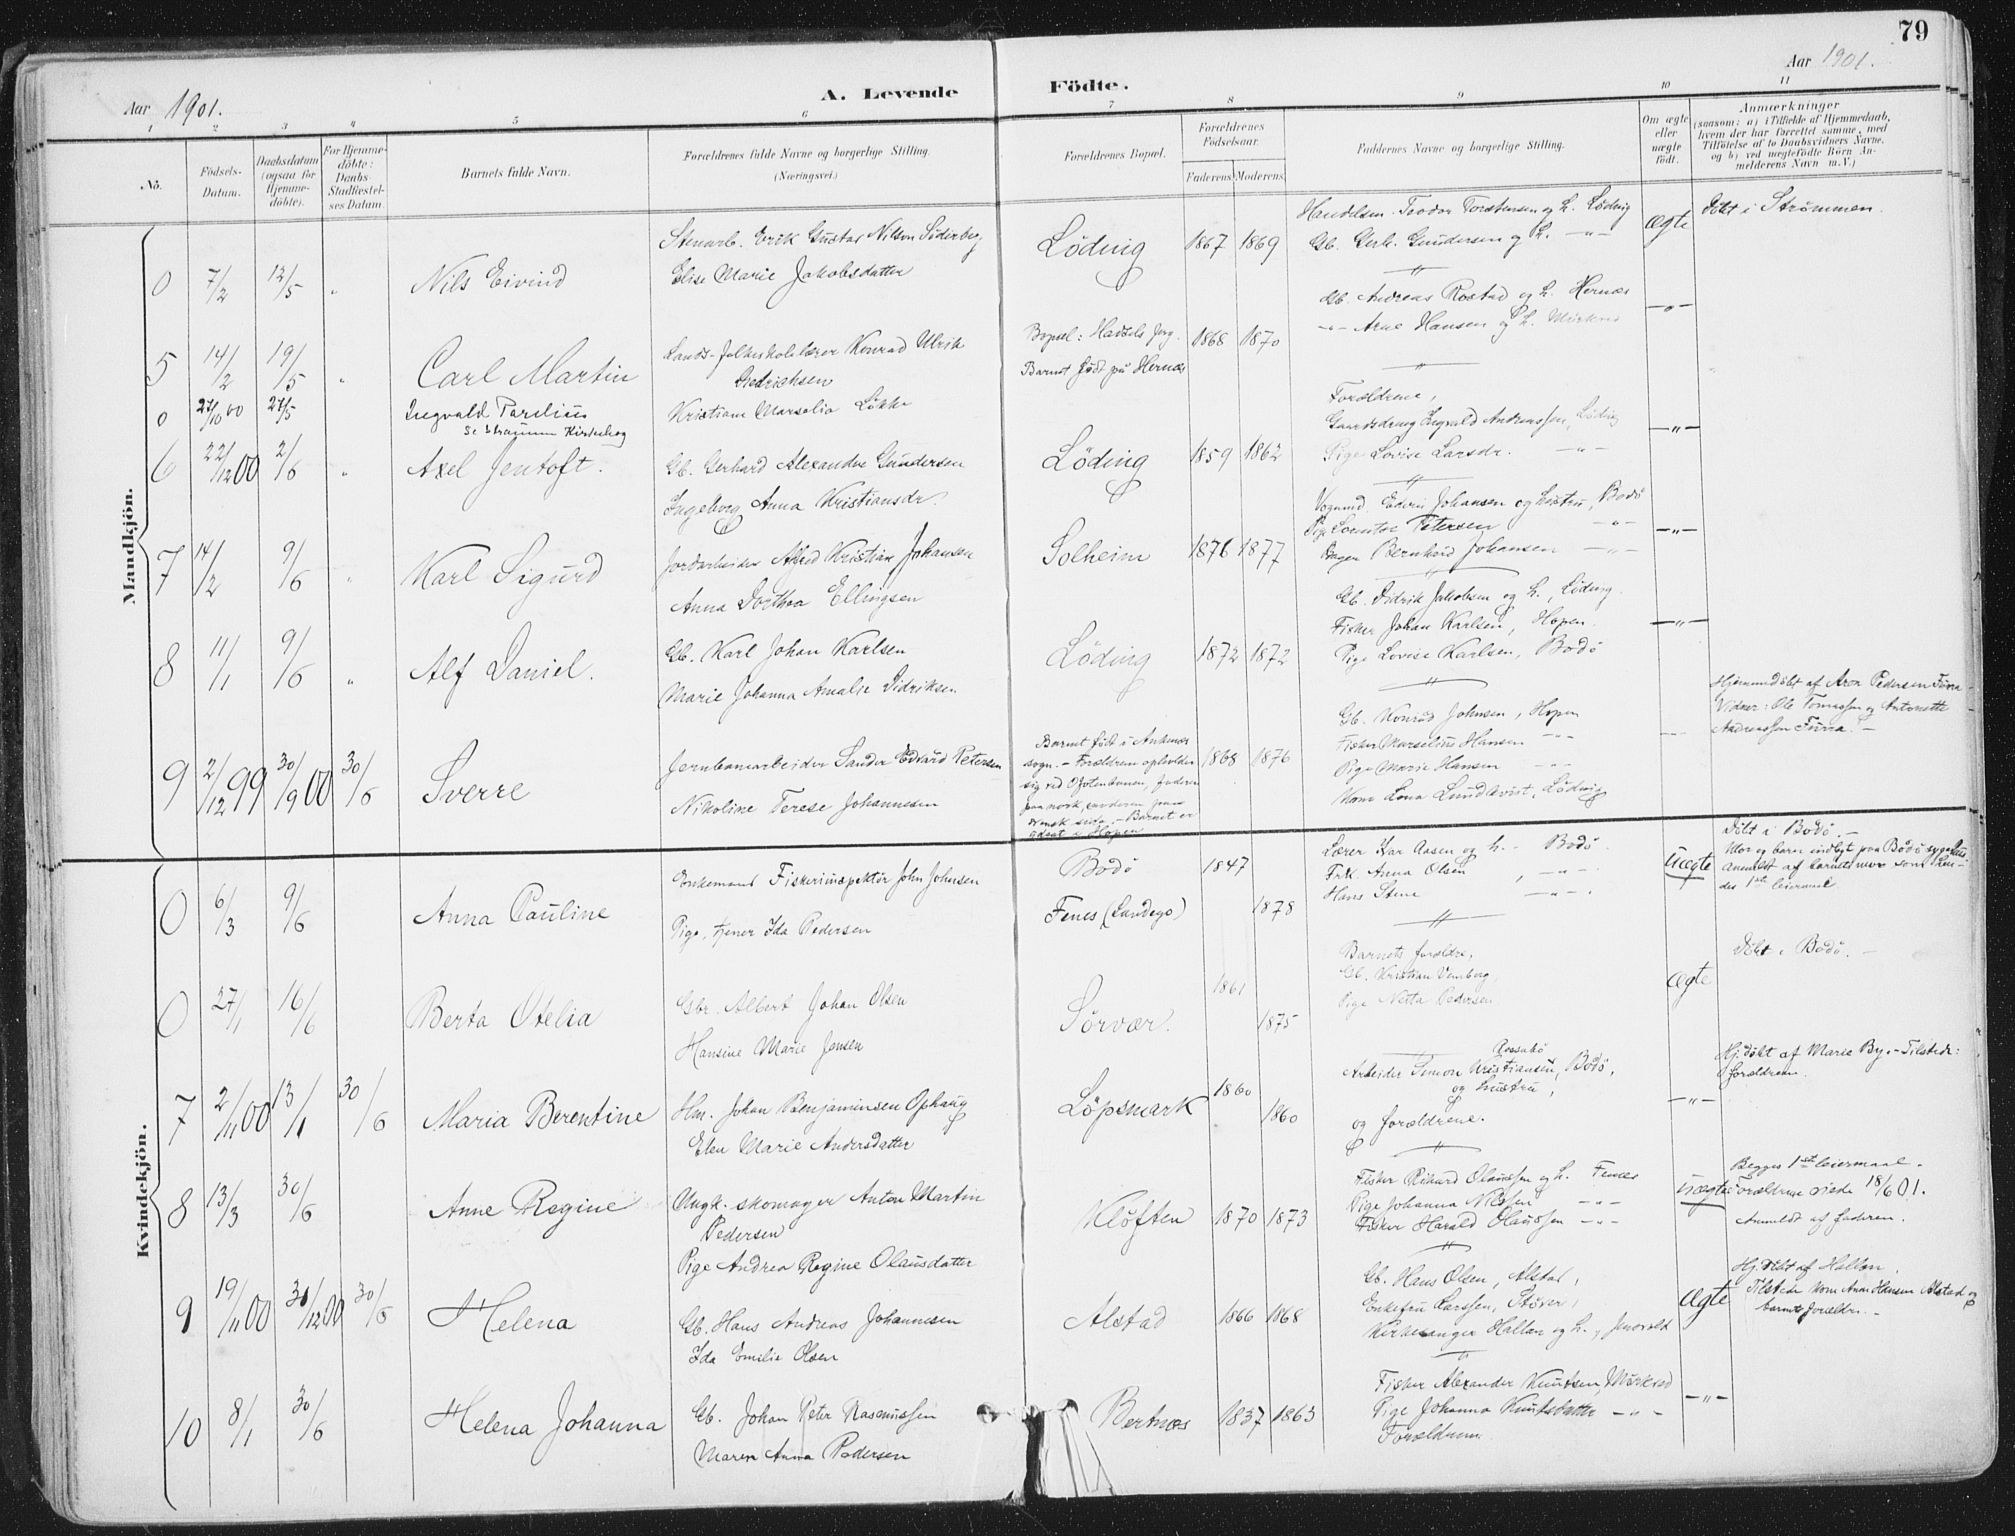 79
Aar 1901.
A. Levende Födte.
Aar 1901.
1 2 3 4 5 6 7 8 9 10 11
No.
Födsels-Datum.
Daabsdatum (ogsaa for Hjemme-döbte).
For Hjemme-döbte: Daabs-Stadfæstel-ses Datum.
Barnets fulde Navn.
Forældrenes fulde Navne og borgerlige Stilling.
(Næringsvei.)
Forældrenes Bopæl.
Forældrenes Födselsaar.
Faderens. Moderens.
Faddernes Navne og borgerlige Stilling.
Om ægte eller uægte födt.
Anmærkninger
(saasom: a) i Tilfælde af Hjemmedaab,
hvem der har forrettet samme, med
Tilföielse af to Daabsvidners Navne,
og b) ved uægtefödte Börn An-
melderens Navn m. V.)
Mandkjön.
0 7/2 12/5 " Nils Eivind
Stenarb. Erik Gustav Nilson Söderberg
Elise Marie Jakobsdatter
Löding 1867 1869
Handelsm. Teodor Torstensen og h. Löding
Gb. Gerh. Gundersen og h. -"-
Ægte
Döbt i Strömmen.
5 14/2 19/5 " Carl Martin
Lands-folkeskolelærer Konrad Ulrik
Diedrichsen
Kristiane Marselia Lökke
Bopæl: Hadsels Prg.
Barnet födt på Hernæs
1868 1870
Gb. Andreas Rostad og h. Hernæs
-"- Arne Hansen og h. Mörkved
-"-
0 27/10 00 27/5 Ingvald Parelius
se Strömmen Kirkebog
6 22/12 00 2/6 " Axel Jentoft.
Gb. Gerhard Alexander Gundersen
Ingeborg Anna Kristiansdr.
Löding 1859 1862
Forældrene,
Gaardsdreng Ingvald Andreassen, Löding
Pige Lovise Larsdr. -"-
-"-
7 14/2 9/6 " Karl Sigurd
Jordarbeider Alfred Kristian Johansen
Anna Dorthea Ellingsen
Solheim 1876 1877
Vognmd. Edvin Johansen og hustru, Bodö
Pige Petersen -"-
Bernhard Johansen -"-
-"-
8 11/1 9/6 " Alf Daniel.
Gb. Karl Johan Karlsen
Marie Johanna Amalie Didriksen
Löding 1872 1872
Gb. Didrik Jakobsen og h., Löding.
Fisker Johan Karlsen, Hopen.
Pige Lovise Karlsen, Bodö
-"-
9 2/12 99 30/9 00 30/6 Sverre
Jernbanearbeider Sander Edvard Petersen
Nikoline Terese Johannesen
Barnet födt i Ankenæs
sogn. - Forældrene opholder
sig ved Ofotenbanen, faderen
paa norsk, moderen paa
svensk side. - Barnet er
i Hopen
1868 1876
Gb. Konrad Johnsen, Hopen
Fisker Marselius Hansen -"-
Pige Marie Hansen -"-
Kone Lona Lundkvist, Löding
Hjemmedöbt af Aron Pedersen Furra
Vidner: Ole Tomassen og Antonette
Andreassen Furra. -
Kvindekjön.
0 6/3 9/6 Anna Pauline
Enkemand Fiskeriinspektör John Johnsen
Pige, tjener Ida Pedersen
Bodö 1847
Fenes (Landego) 1878
Lærer Ivar Aasen og h. - Bodö.
Frk. Anna Olsen, -"-
Hans Stene -"-
Uægte
Döbt i Bodö. -
Mor og barn indlagt paa Bodö sygehus
Anmeldt af barnets mor som hen-
des 1ste leiermaal
0 27/1 16/6 Berta Otelia
Gbr. Albert Johan Olsen
Hansine Marie Jensen
Sörvær. 1861 1875
Barnets forældre,
Gb. Kristian Vemberg,
Pige Netta Pedersen
Ægte
Döbt i Bodö. -
7 2/11 00 13/1 30/6 Maria Berentine
Hm. Johan Benjaminsen Ophaug
Elen Marie Andersdatter
Löpsmark 1860 1860
Arbeider Simon Kristiansen, Bodö,
og hustru,
og forældrene.
-"-
Hj.döbt af Marie By. - Tilstede:
forældrene.
8 13/3 30/6 Anne Regine
Ungk. skomager Anton Martin
Pedersen
Pige Andrea Regine Olausdatter
Klöften 1870 1873
Fisker Rikard Olaussen og h. Fenes
Pige Johanna Nilssen -"-
Fisker Harald Olaussen -"-
Uægte
Begges 1ste leiermaal.
Forældrene viede 18/6 01.
Anmeldt af faderen.
9 19/11 00 30/12 00 30/6 Helena
Gb. Hans Andreas Johannesen
Ida Emilie Olsen
Alstad 1866 1868
Gb. Hans Olsen, Alstad,
Enkefru Larssen, Stöver,
Kirkesanger Hallan og h., Jensvold
Ægte
Hj.döbt af Hallan.
Tilstede Kone Anne Hansen Alstad og
barnets forældre. -
10 8/1 30/6 Helena Johanna
Gb. Johan Peter Rasmussen
Maren Anna Pedersen
Bertnæs 1837 1863
Fisker Alexander Knutsen, Mörkved
Pige Johanna Knutsdatter -"-
Forældrene
-"-